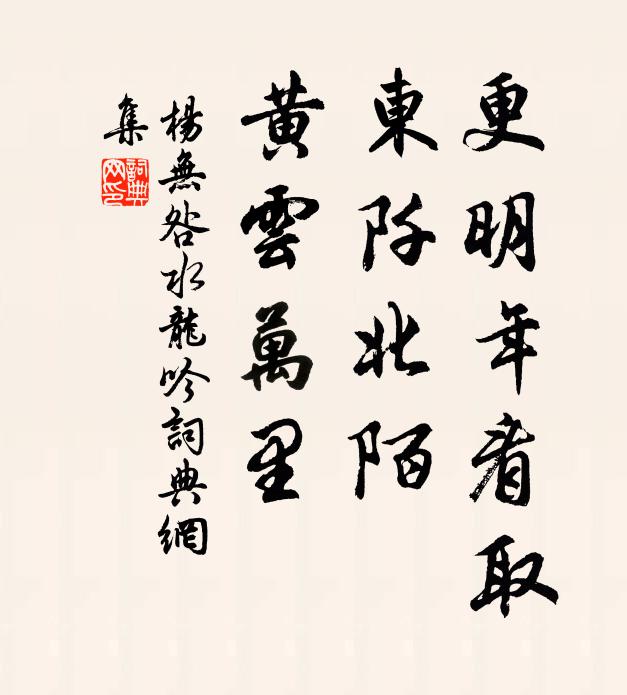 更明年看取
東阡北陌
黃雲萬里
楊無咎水龍吟詞典網
集
詞典網印